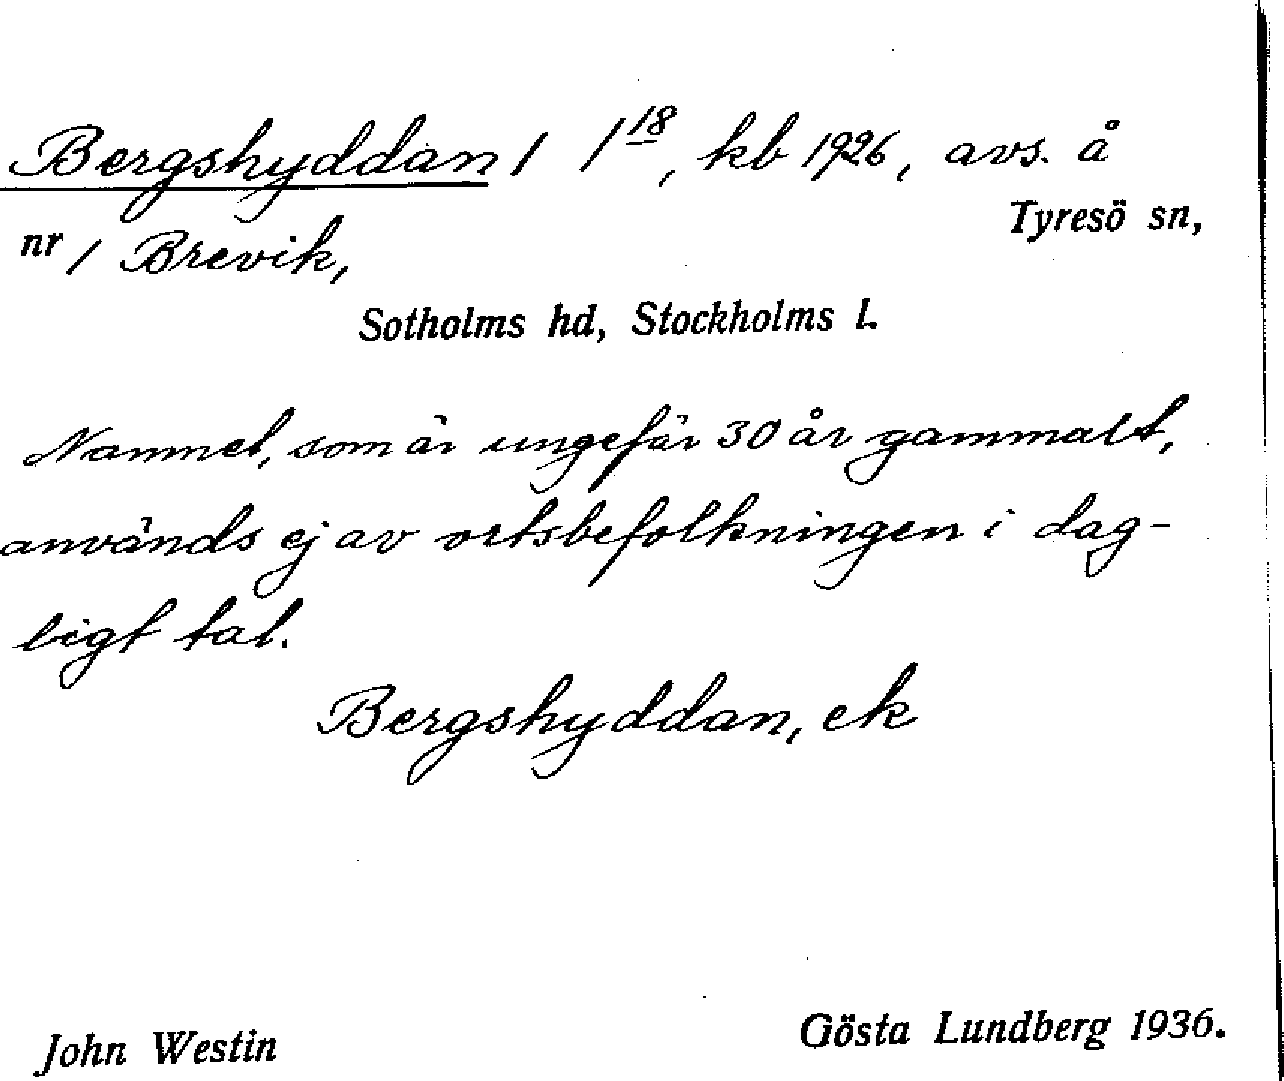 Bergshyddan 1 1 18, kb 1926, avs. å
Tyresö sn,
nr 1 Brevik,
Sotholms hd, Stockholms l.
Namnet, som är ungefär 30 år gammalt,
används ej av ortsbefolkningen i dag-
ligt tal.
Bergshyddan, ek
John Westin
Gösta Lundberg 1936.